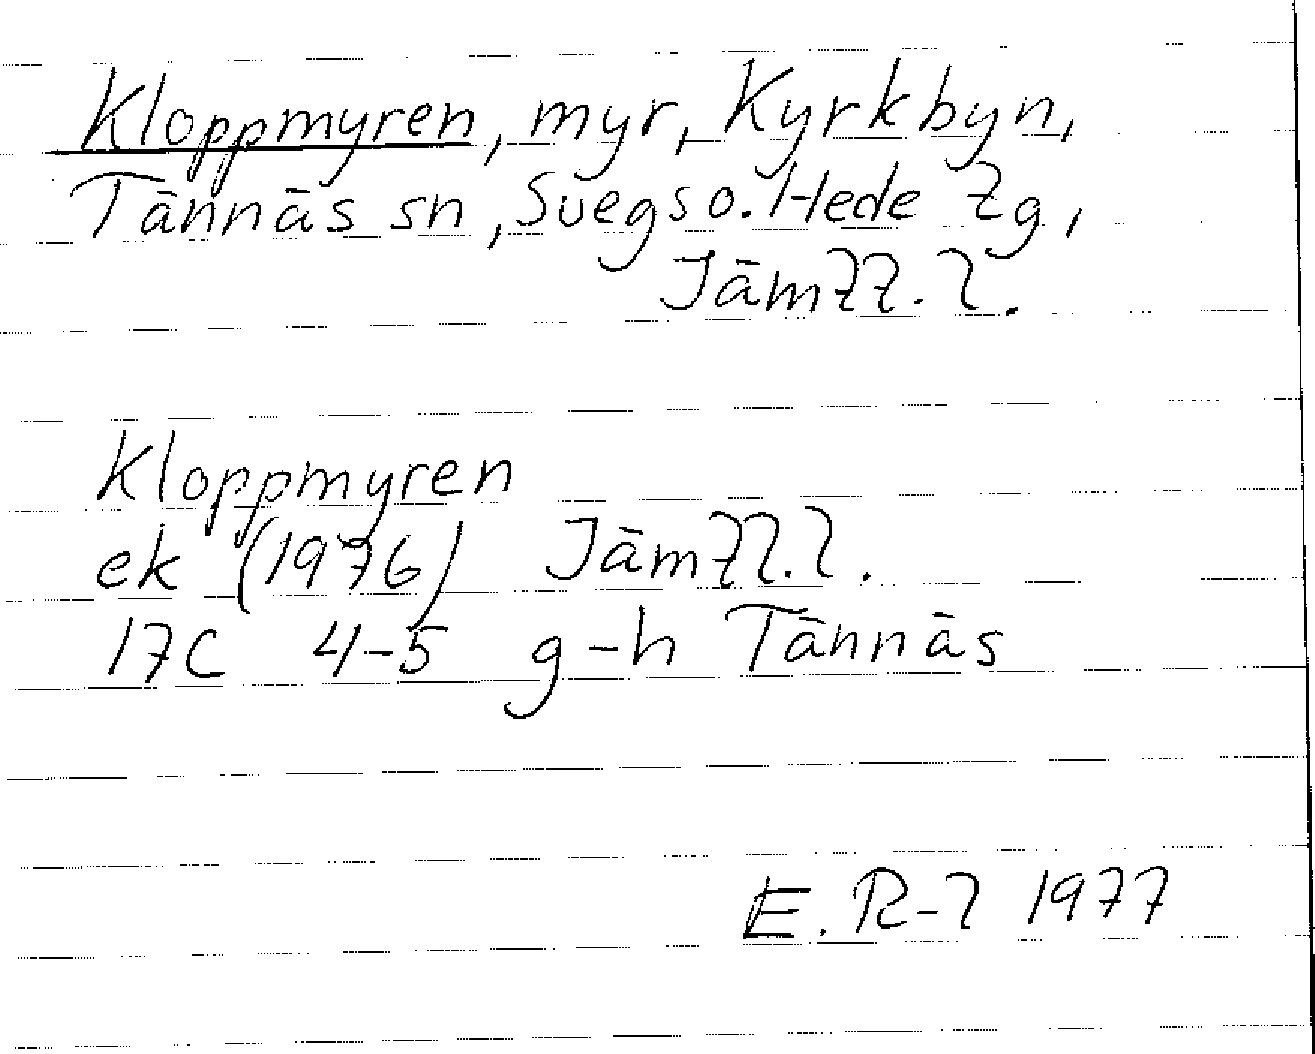 Kloppmyren, myr, Kyrkbyn,
Tännäs sn, Svegs o. Hede tg,
Jämtl. l.
Kloppmyren
ek (1976) Jämtl. l.
17C 4-5 g-h Tännäs
E. R-l 1977